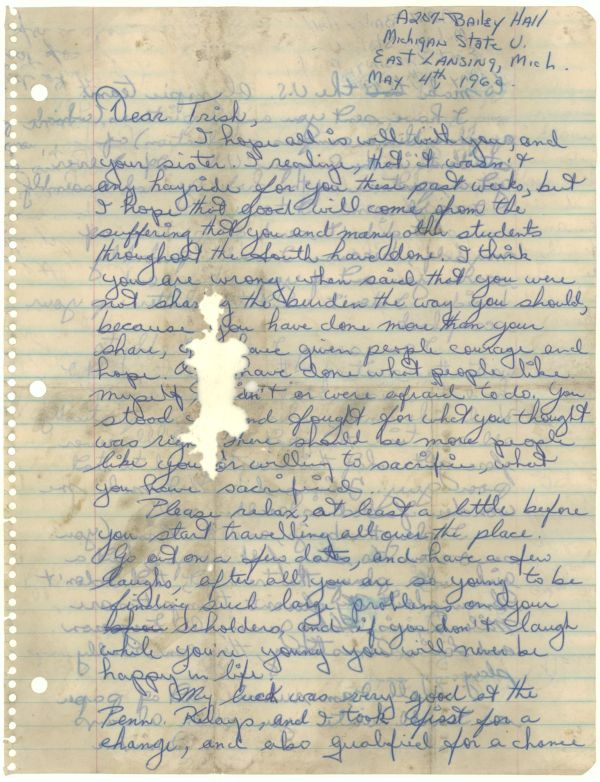 A207- Bailey Hall
Michigan State U.
East Lansing, Mich.
May 4th, 1960.
Dear Trish,
I hope all is will with you, and
your sister. I realize, that it wasn't
any hayride for you these past weeks, but
I hope that good will come from the
suffering that you and many other students
throughout the South have done. I think
you are wrong when said that you were
not the burden the way you should,
because you have done more than your
share, have given people courage and
hope. have done what people like
myself, or were afraid to do. You
stood and fought for what you thought
was There should be more people
like you or willing to sacrifice, what
you have sacrificed.
Please relax, at least a little before
you start travelling all over the place.
Go out on a few dates, and have a few
laughs, after all you are so young to be
finding such large problems on your
scholders, and if you don't laugh
while you're young you will never be
happy in life.
My luck was very good at the
Penn Relays, and I took a first for a
change, and also qualified for a chance